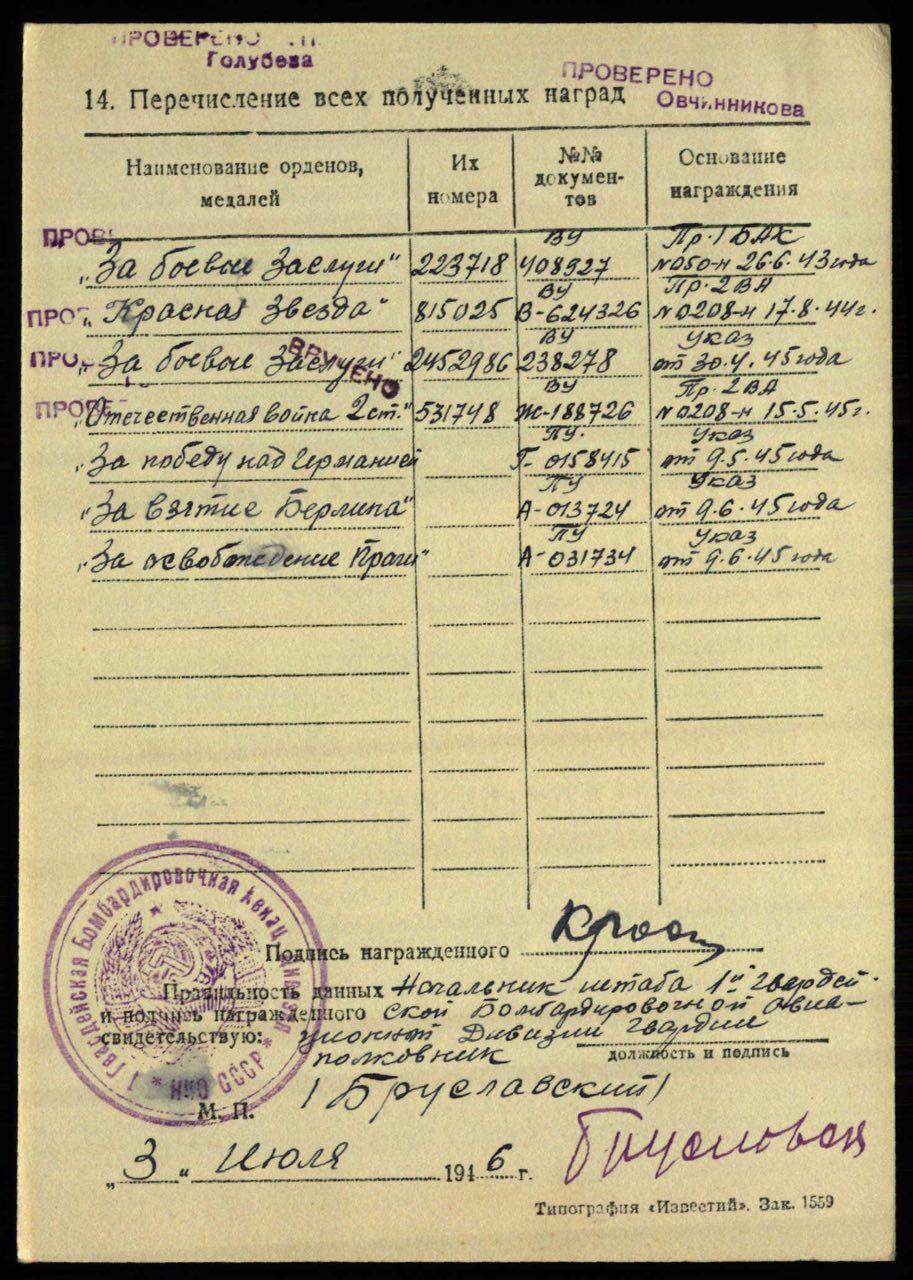 ПРОВЕРЕНО
Голубева
ПРОВЕРЕНО
Овчинникова
14. Перечисление всех полученных наград
Наименование орденов, медалей
Их номера
№№ документов
Основание награждения
ВУ Пр. 1 БАК
„За боевые Заслуги" 223718 408927 №050-н 26.6.43 года
ВУ Пр. 2ВА
„Красная Звезда" 815025 В-624326 №0208-н 17.8.44г.
ВУ Указ
„За боевые Заслуги" 2452986 238278 от 30.4.45 года
ВРУЧЕНО
ВУ Пр. 2ВА
„Отечественная война 2 ст." 531748 Ж-188726 №0208-н 15.5.45г.
ПУ. Указ
„За победу над Германией Г-0158415 от 9.5.45 года
ПУ Указ
„За взятие Берлина" А-013724 от 9.6.45 года
ПУ Указ
„За освобождение Праги" А-031734 от 9.6.45 года
Подпись награжденного
Правильность данных Начальник штаба 1ой Гвардей-
и подпись награжденного ской Бомбардировочной Авиа-
свидетельствую: ционной Дивизии Гвардии
полковник должность и подпись
/Бруславский/
М. П.
1 Гвардейская Бомбардировочная Авиац
* НКО СССР *
„3" Июля 1946 г.
Типография «Известий». Зак. 1559